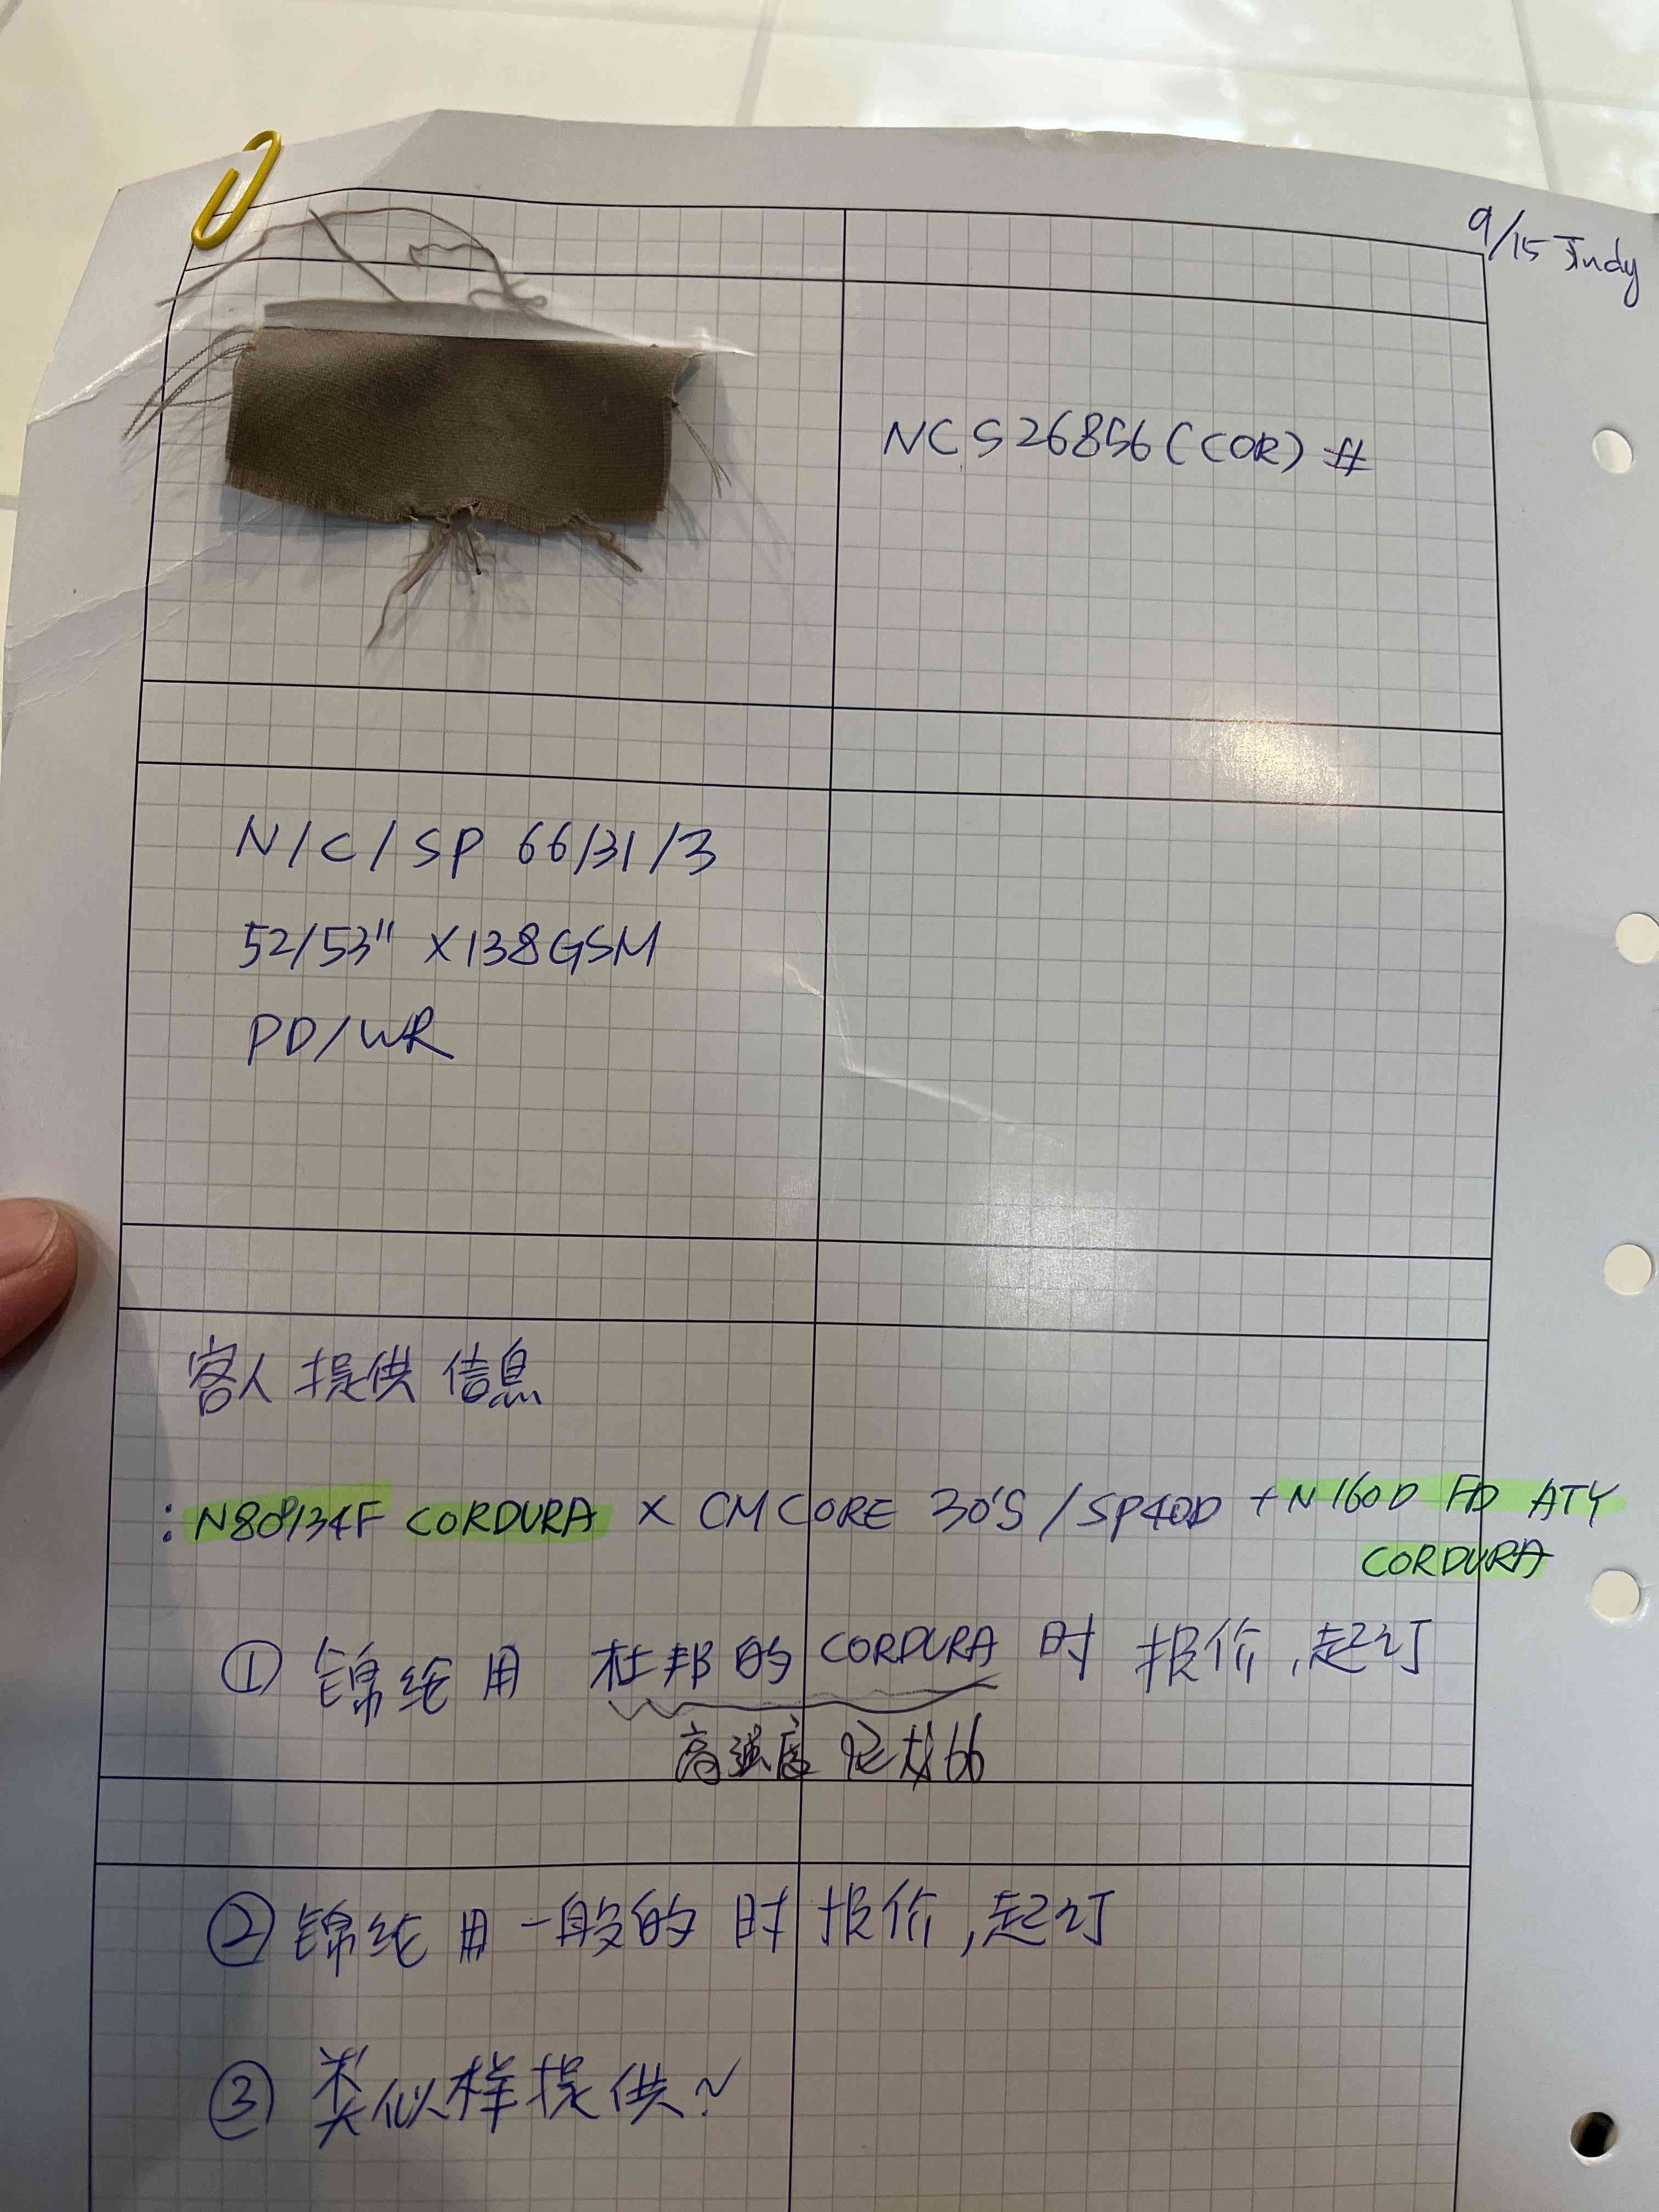 9/15 Judy
NCS26856(COR)#
N/C/SP 66/31/3
52/53" X138GSM
PD/WR
客人提供信息
: N80D/34F CORDURA × CMCORE 30'S/SP40D +N160D FD ATY
CORDURA
① 锦纶用 杜邦的 CORDURA 时 报价,起订
高强度尼龙66
② 锦纶用一般的时报价,起订
③ 类似样提供~